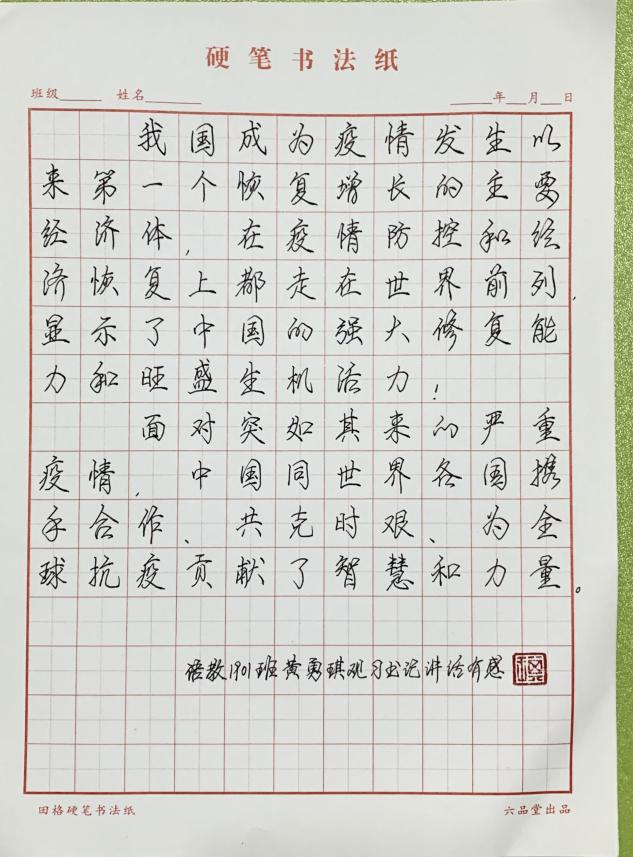 硬笔书法纸
班级 姓名 年 月 日
我国成为疫情发生以
来第一个恢复增长的主要
经济体,在疫情防控和经
济恢复上都走在世界前列,
显示了中国的强大修复能
力和旺盛生机活力!
面对突如其来的严重
疫情,中国同世界各国携
手合作、共克时艰、为全
球抗疫贡献了智慧和力量。
语教1901班黄勇琪观习书记讲话有感
田格硬笔书法纸 六品堂出品